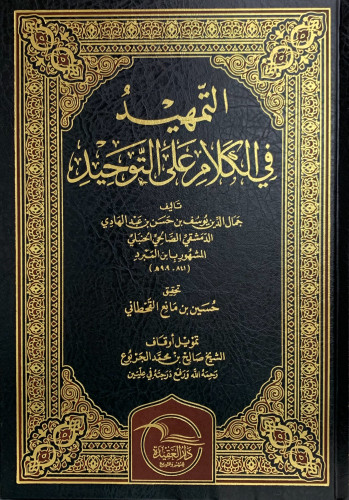 التمهيد
في الكلام على التوحيد
تأليف
جمال الدين يوسف بن حسن بن عبد الهادي
الدمشقي الصالحي الحنبلي
المشهور بابن المبرد
(٨٤١ - ٩٠٩ هـ)
تحقيق
حسين بن مانع القحطاني
تمويل أوقاف
الشيخ صالح بن محمد الجربوع
رحمه الله ورفع درجته في عليين
دار العقيدة
للنشر والتوزيع